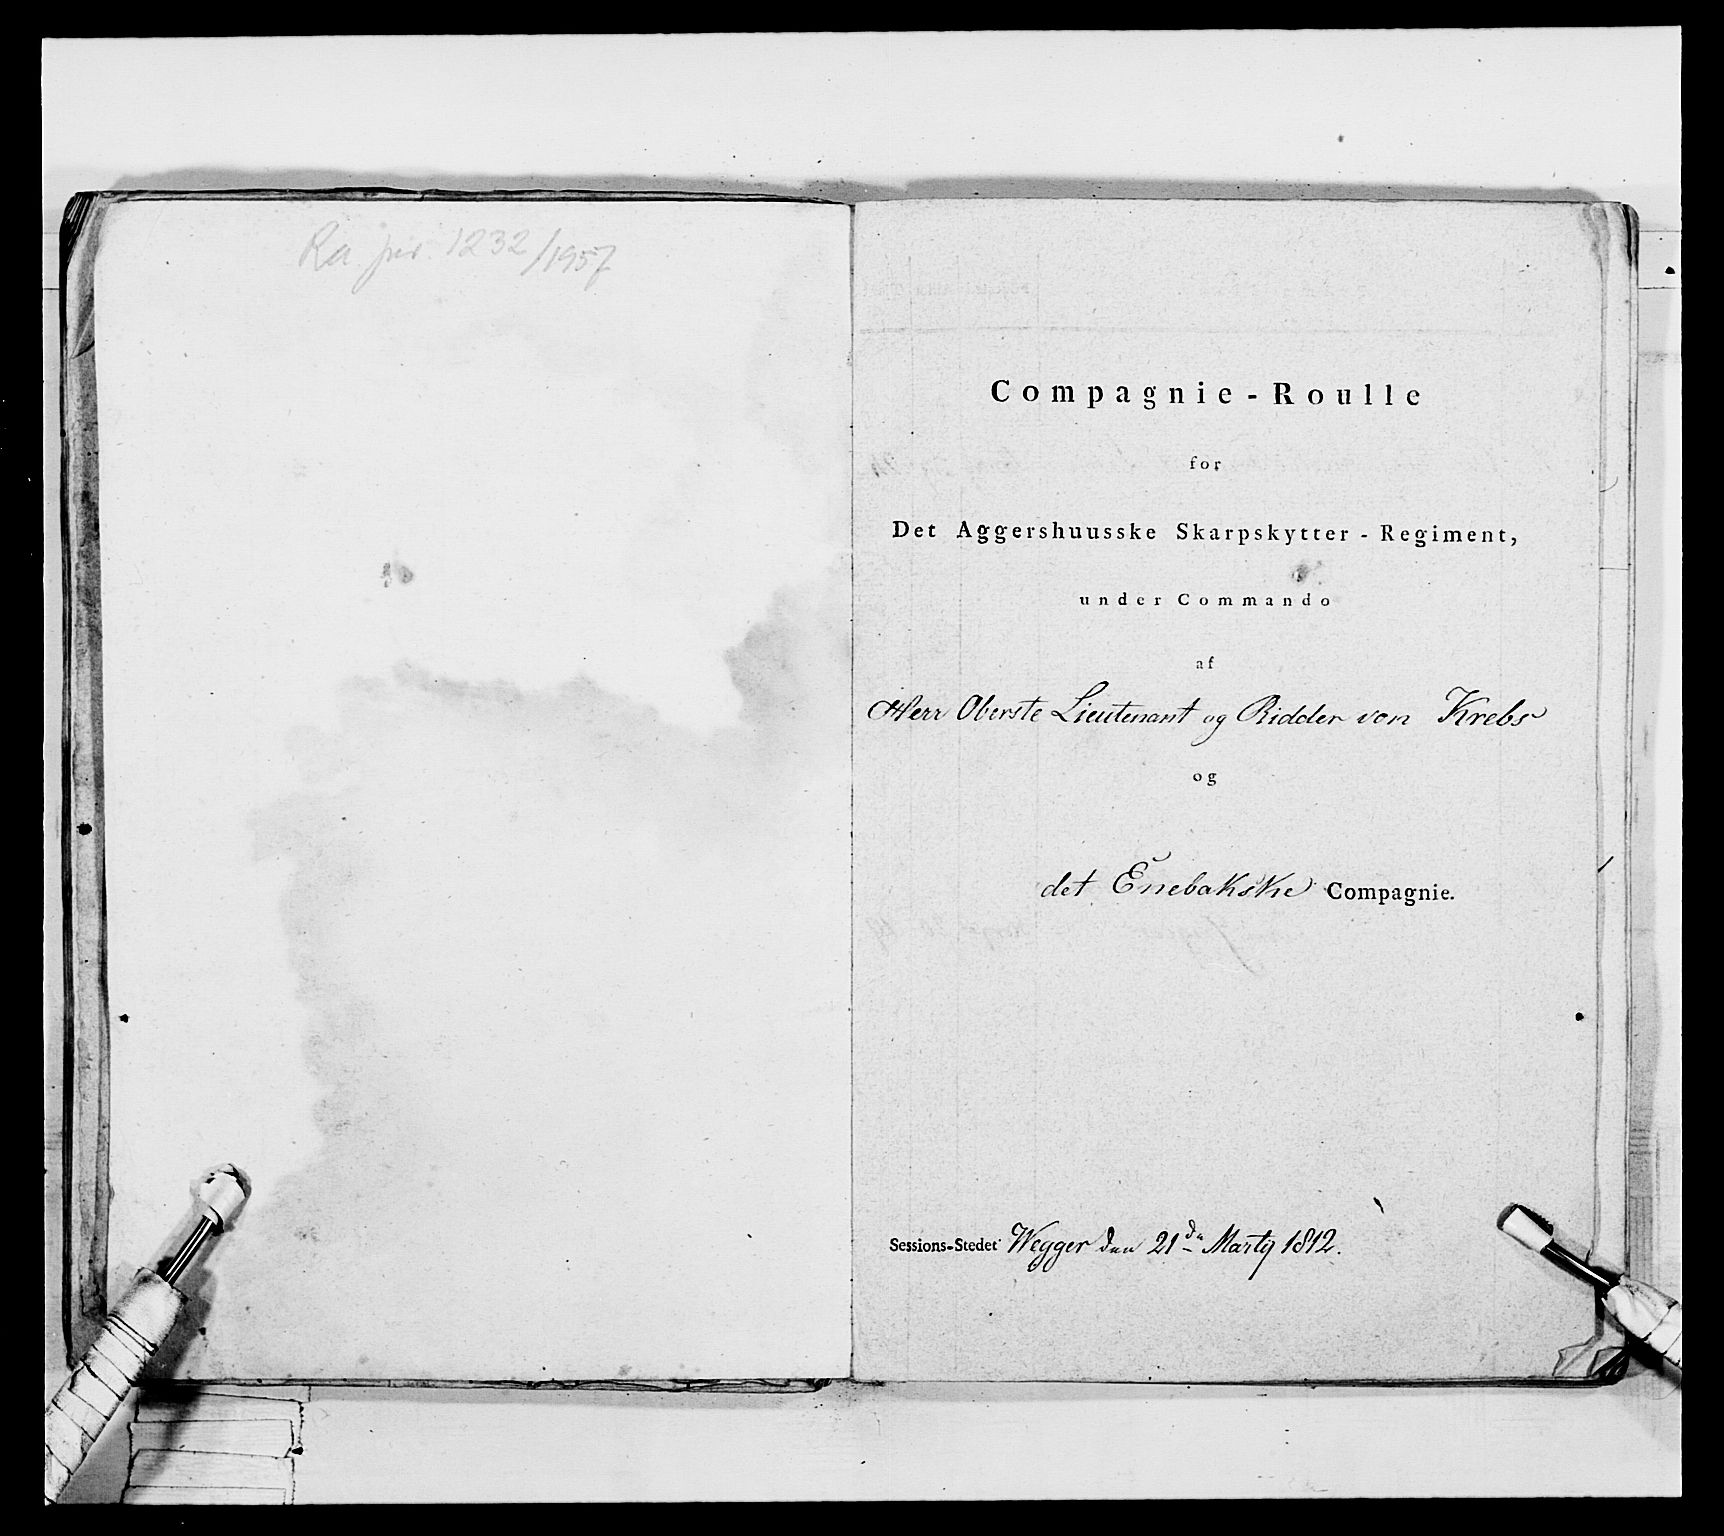 Ra jnr. 1232/1957
Compagnie-Roulle
for
Det Aggershuusske Skarpskytter-Regiment,
under Commando
af
Herr Oberste Lieutenant og Ridder von Krebs
og
det Enebakske Compagnie.
Sessions-Stedet Wegger den 21de Marty 1812.